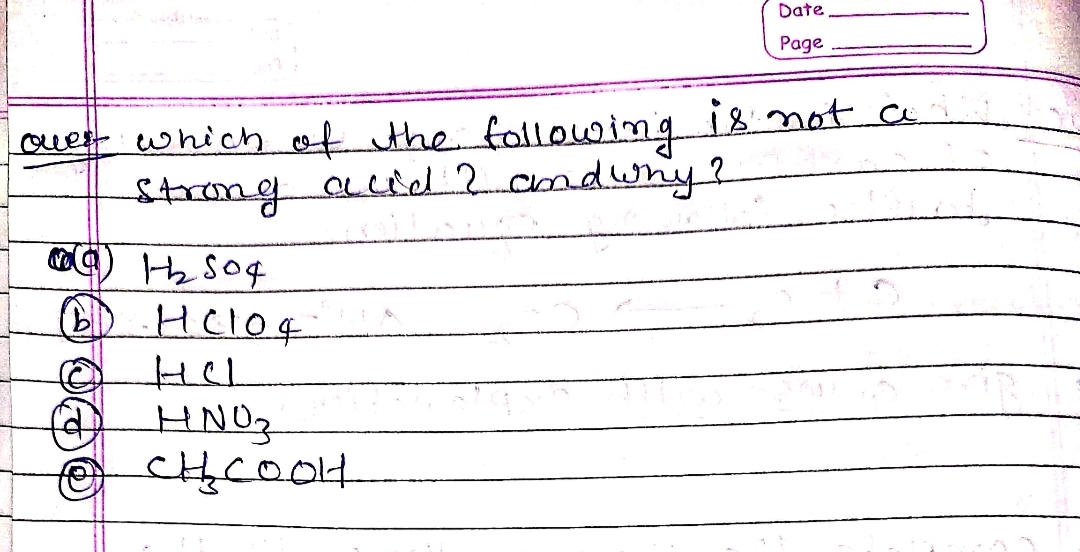 Date
Page
Ques which of the following is not a
strong acid ? and why ?
(a) H2SO4
(b) HClO4
(c) HCl
(d) HNO3
(e) CH3COOH